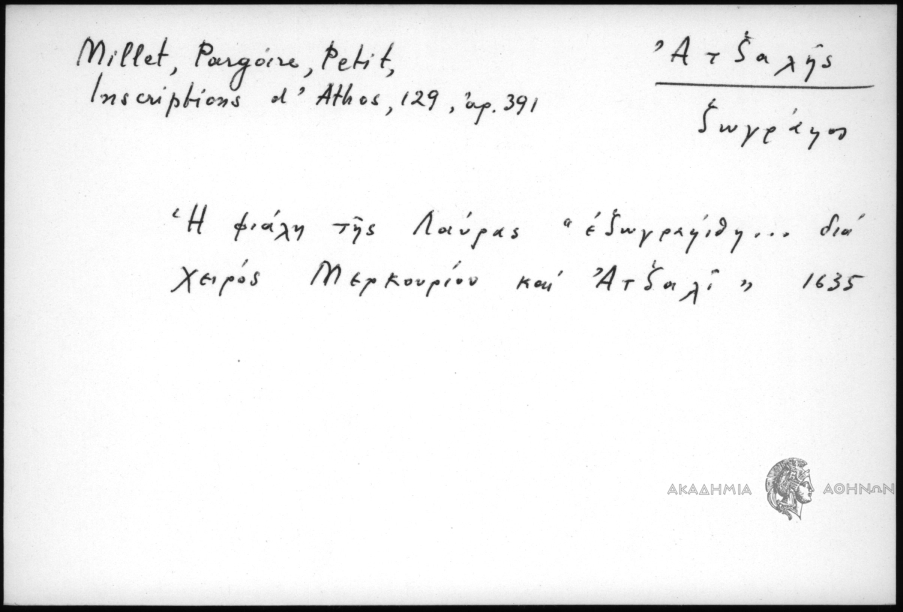 Millet, Pargoire, Petit,
Inscriptions d' Athos, 129, ἀρ. 391
Ἀτζαλῆς
ζωγράφος
Ἡ φιάλη τῆς Λαύρας "ἐζωγραφίθη... διά
χειρός Μερκουρίου καί Ἀτζαλῖ" 1635
ΑΚΑΔΗΜΙΑ ΑΘΗΝΩΝ